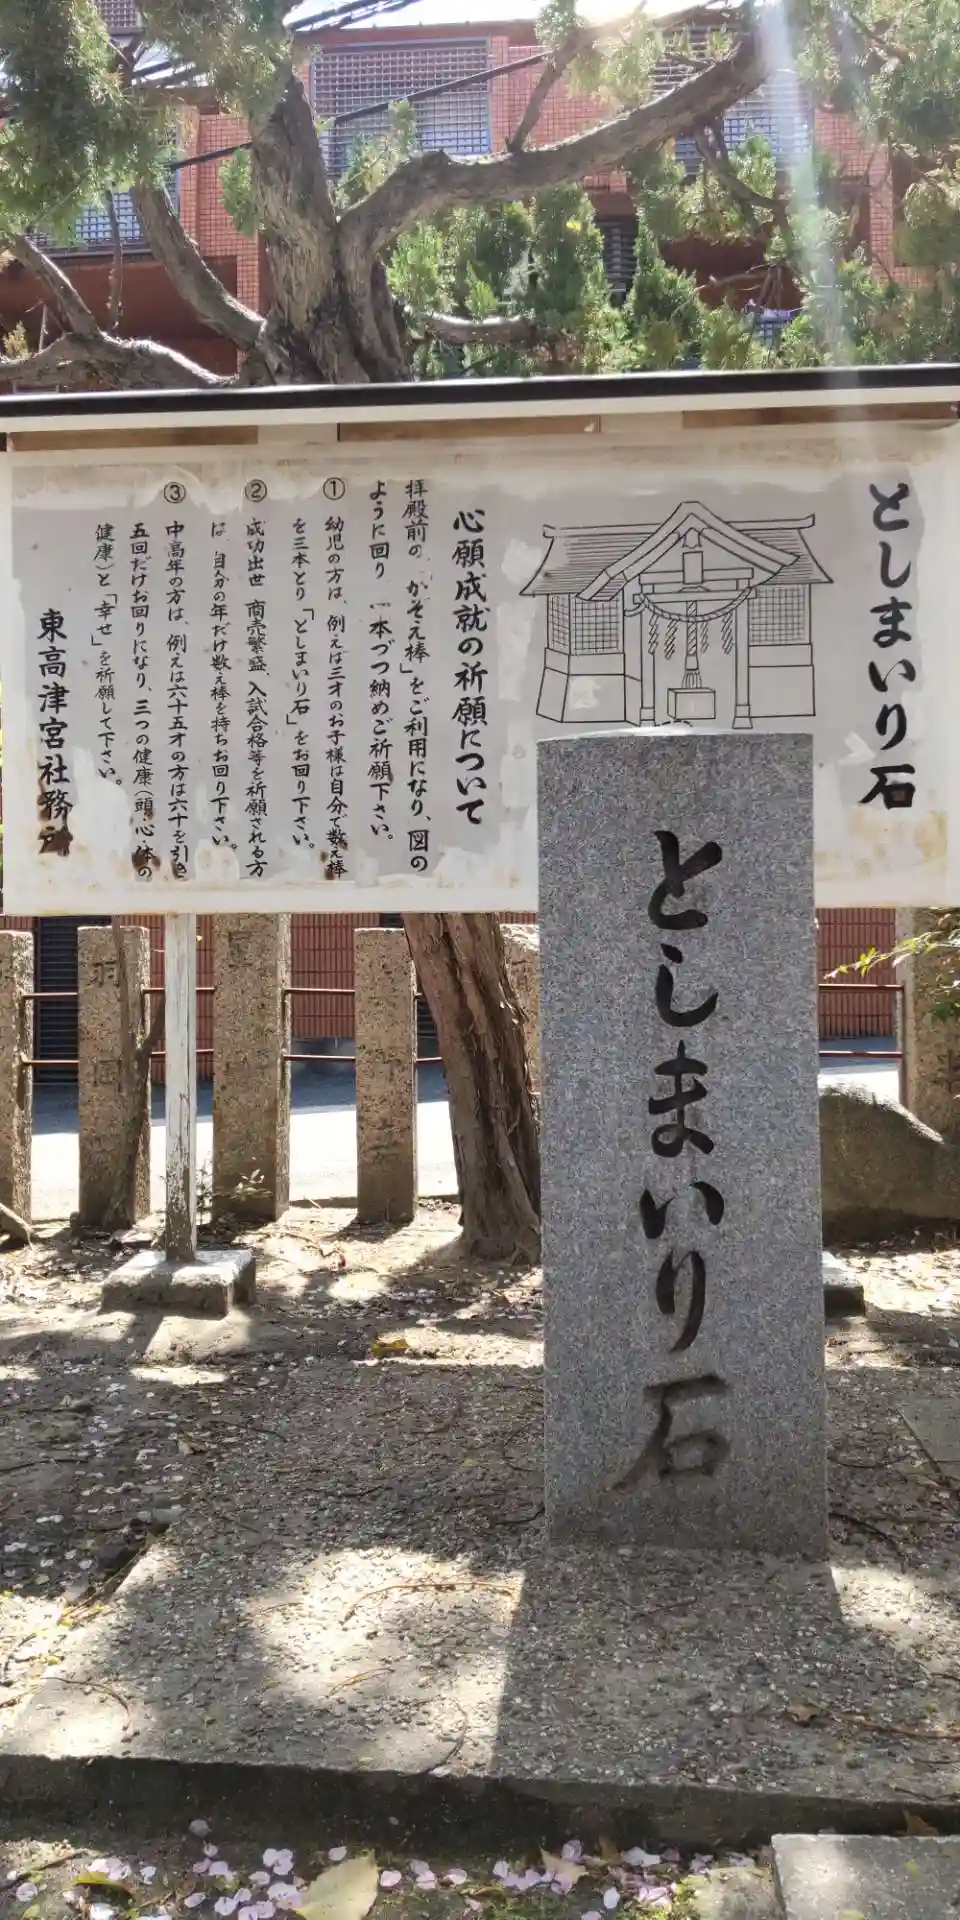 としまいり石
心願成就の祈願について
拝殿前の、「かぞえ棒」をご利用になり、図の
ように回り 一本づつ納めご祈願下さい。
① 幼児の方は、例えば三才のお子様は自分で数え棒
を三本とり「としまいり石」をお回り下さい。
② 成功出世 商売繁盛、入試合格等を祈願される方
は、自分の年だけ数え棒を持ちお回り下さい。
③ 中高年の方は、例えば六十五才の方は六十を引き
五回だけお回りになり、三つの健康（頭・心・体の
健康）と「幸せ」を祈願して下さい。
東高津宮社務所
としまいり石